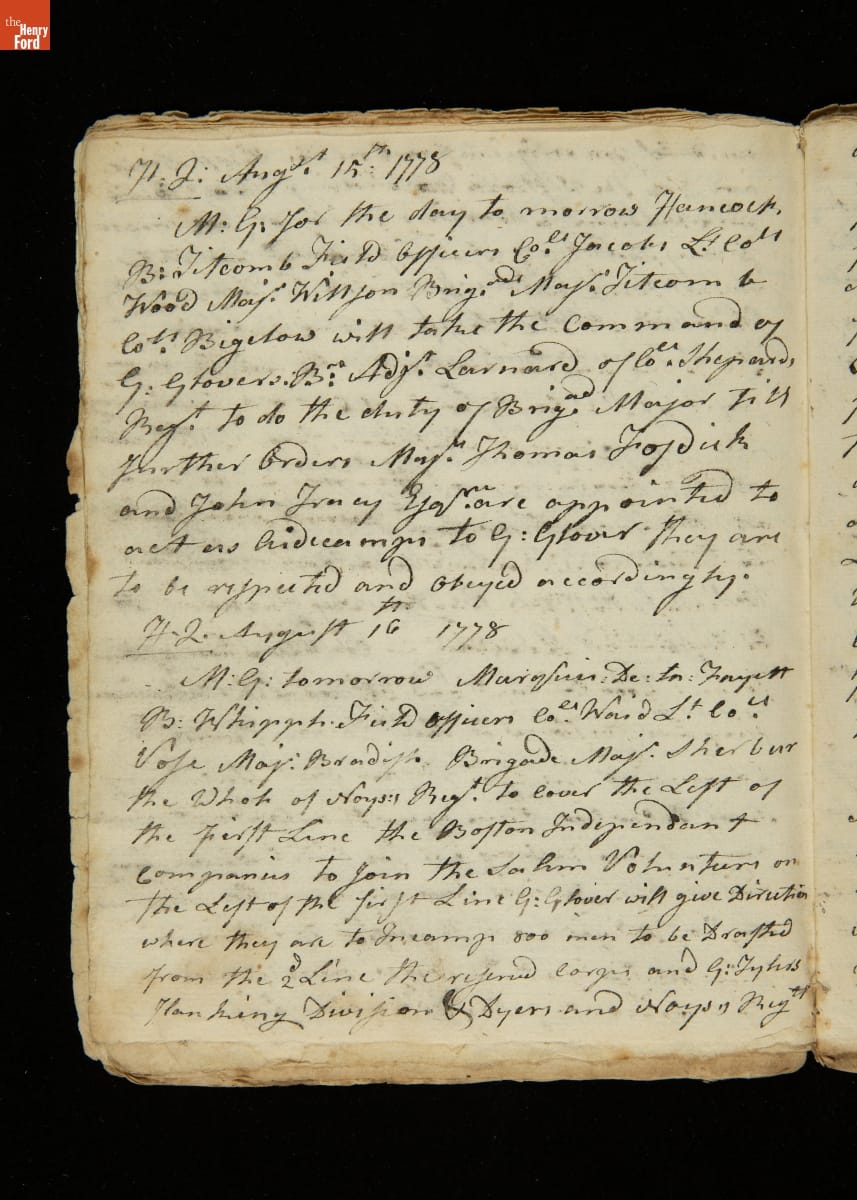 the
Henry
Ford
H: Q: Augst 15th 1778
M: G: for the day to morrow Hancock,
B: Titcomb Field Officers Colls Jacobs Lt Colls
Wood Majr Willson Brigade Majr Titcomb
Coll Bigelow will take the Command of
G: Glovers: Be Adjt Larnard of Coll Shepards
Regt to do the duty of Brigad Major till
further Orders Majr Thomas Fosdick
and John Tracy Esqrs are appointed to
act as Aidecamps to G: Glover they are
to be respected and obeyed accordingly.
H: Q. August 16th 1778
M: G: tomorrow Marquis: De: la: Fayett
B: Whipple. Field officers Colls Waid Lt Colls
Vose Majr Bradish. Brigade Majr Sherbur
the Whole of Noyss Regt to Cover the Left of
the first Line the Boston Independant
Companies to Join the Salem Volunteers on
the Left of the first Line G: Glover will give Direction
where they are to Incamp 800 men to be Drafted
from the 2d Line the reserud Corps and G: Tylers
Flanking Division & Dyers and Noyss Regts